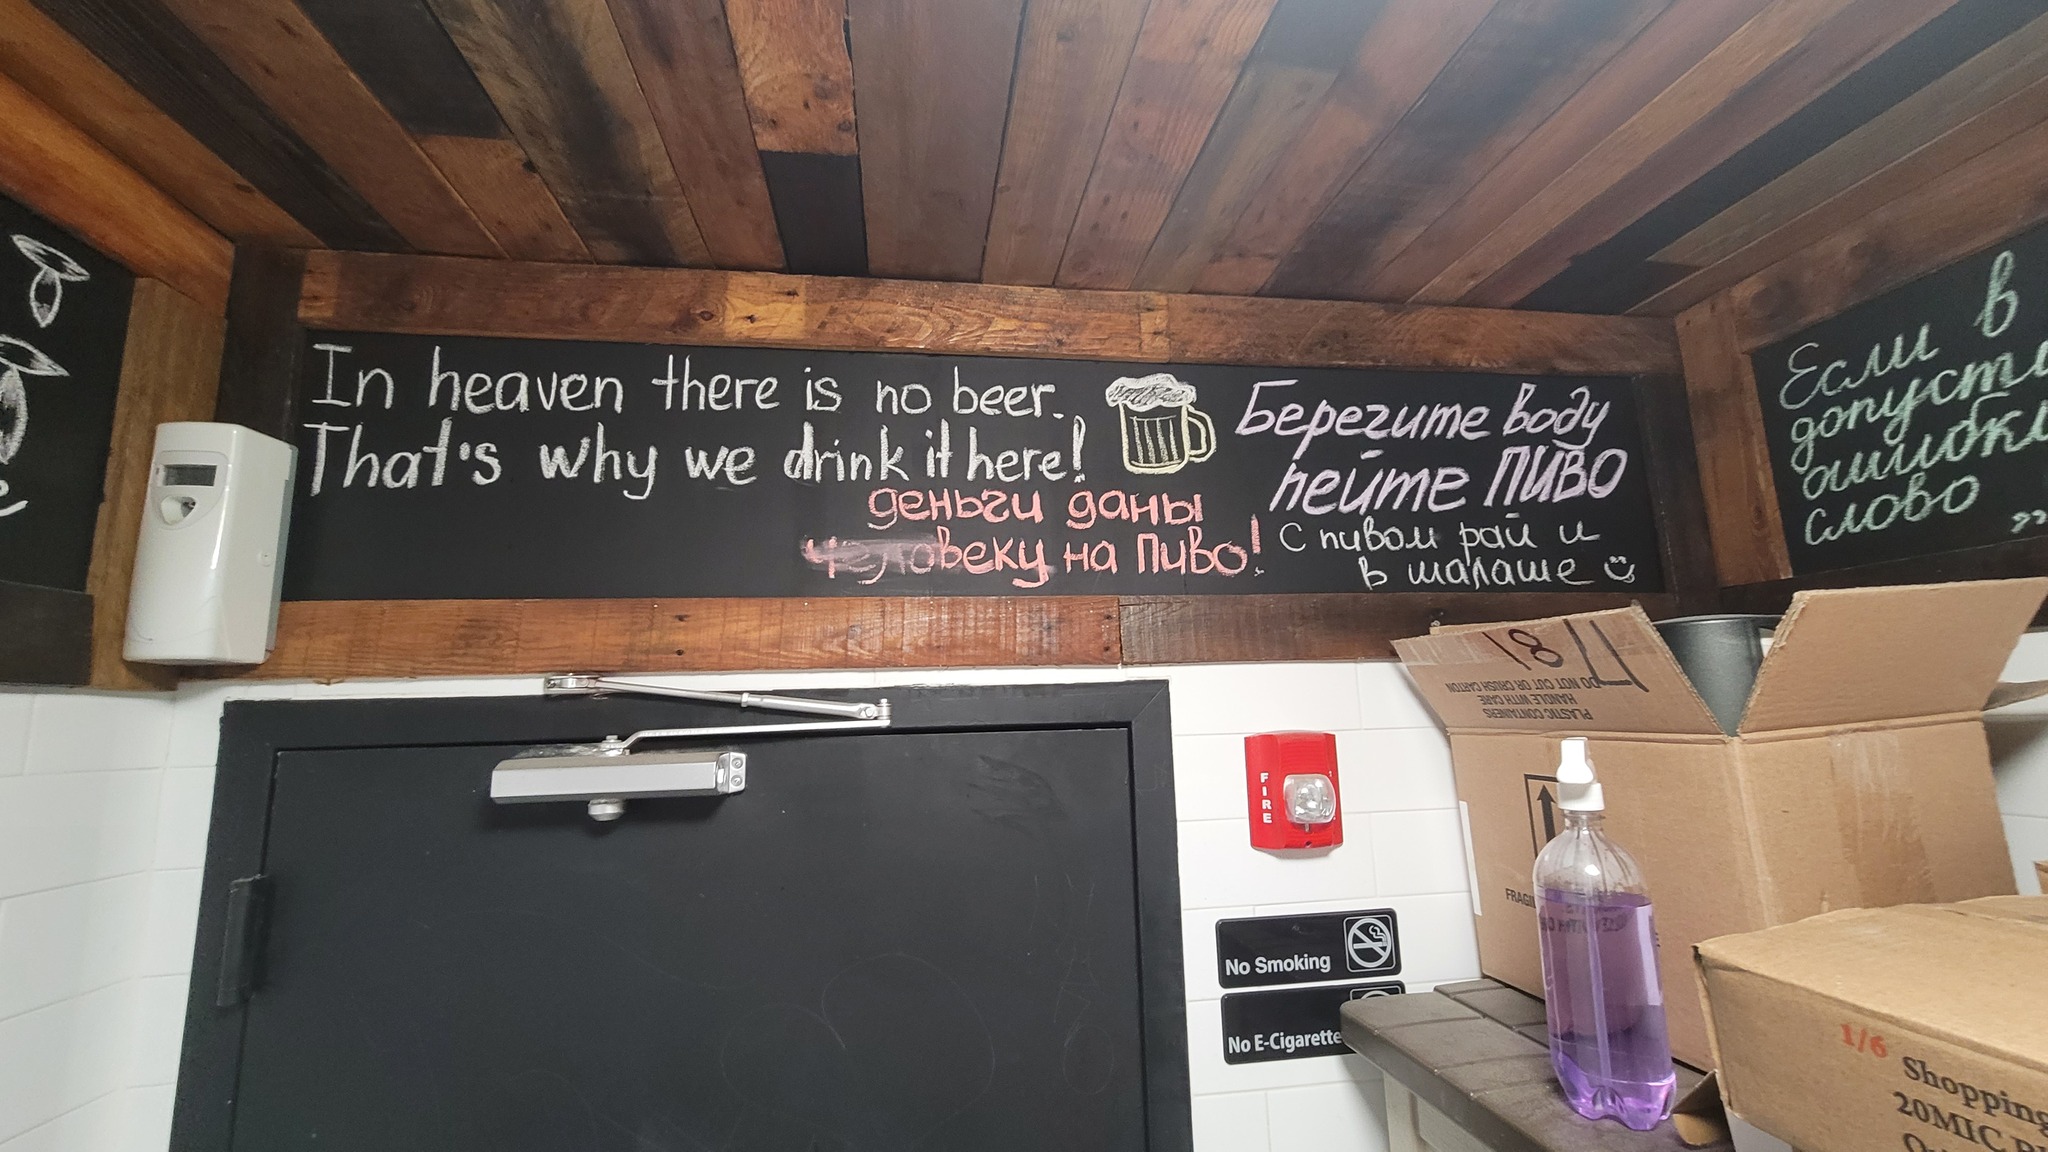 In heaven there is no beer.
That's why we drink it here!
деньги даны
человеку на Пиво!
Берегите воду
пейте ПИВО
С пивом рай и
в шалаше
Если в
допусти
ошибку
слово
1781
DO NOT CUT OR CRUSH CARTON
HANDLE WITH CARE
PLASTIC CONTAINERS
FIRE
FRAGI
No Smoking
No E-Cigarette
1/6
Shopping
20MIC